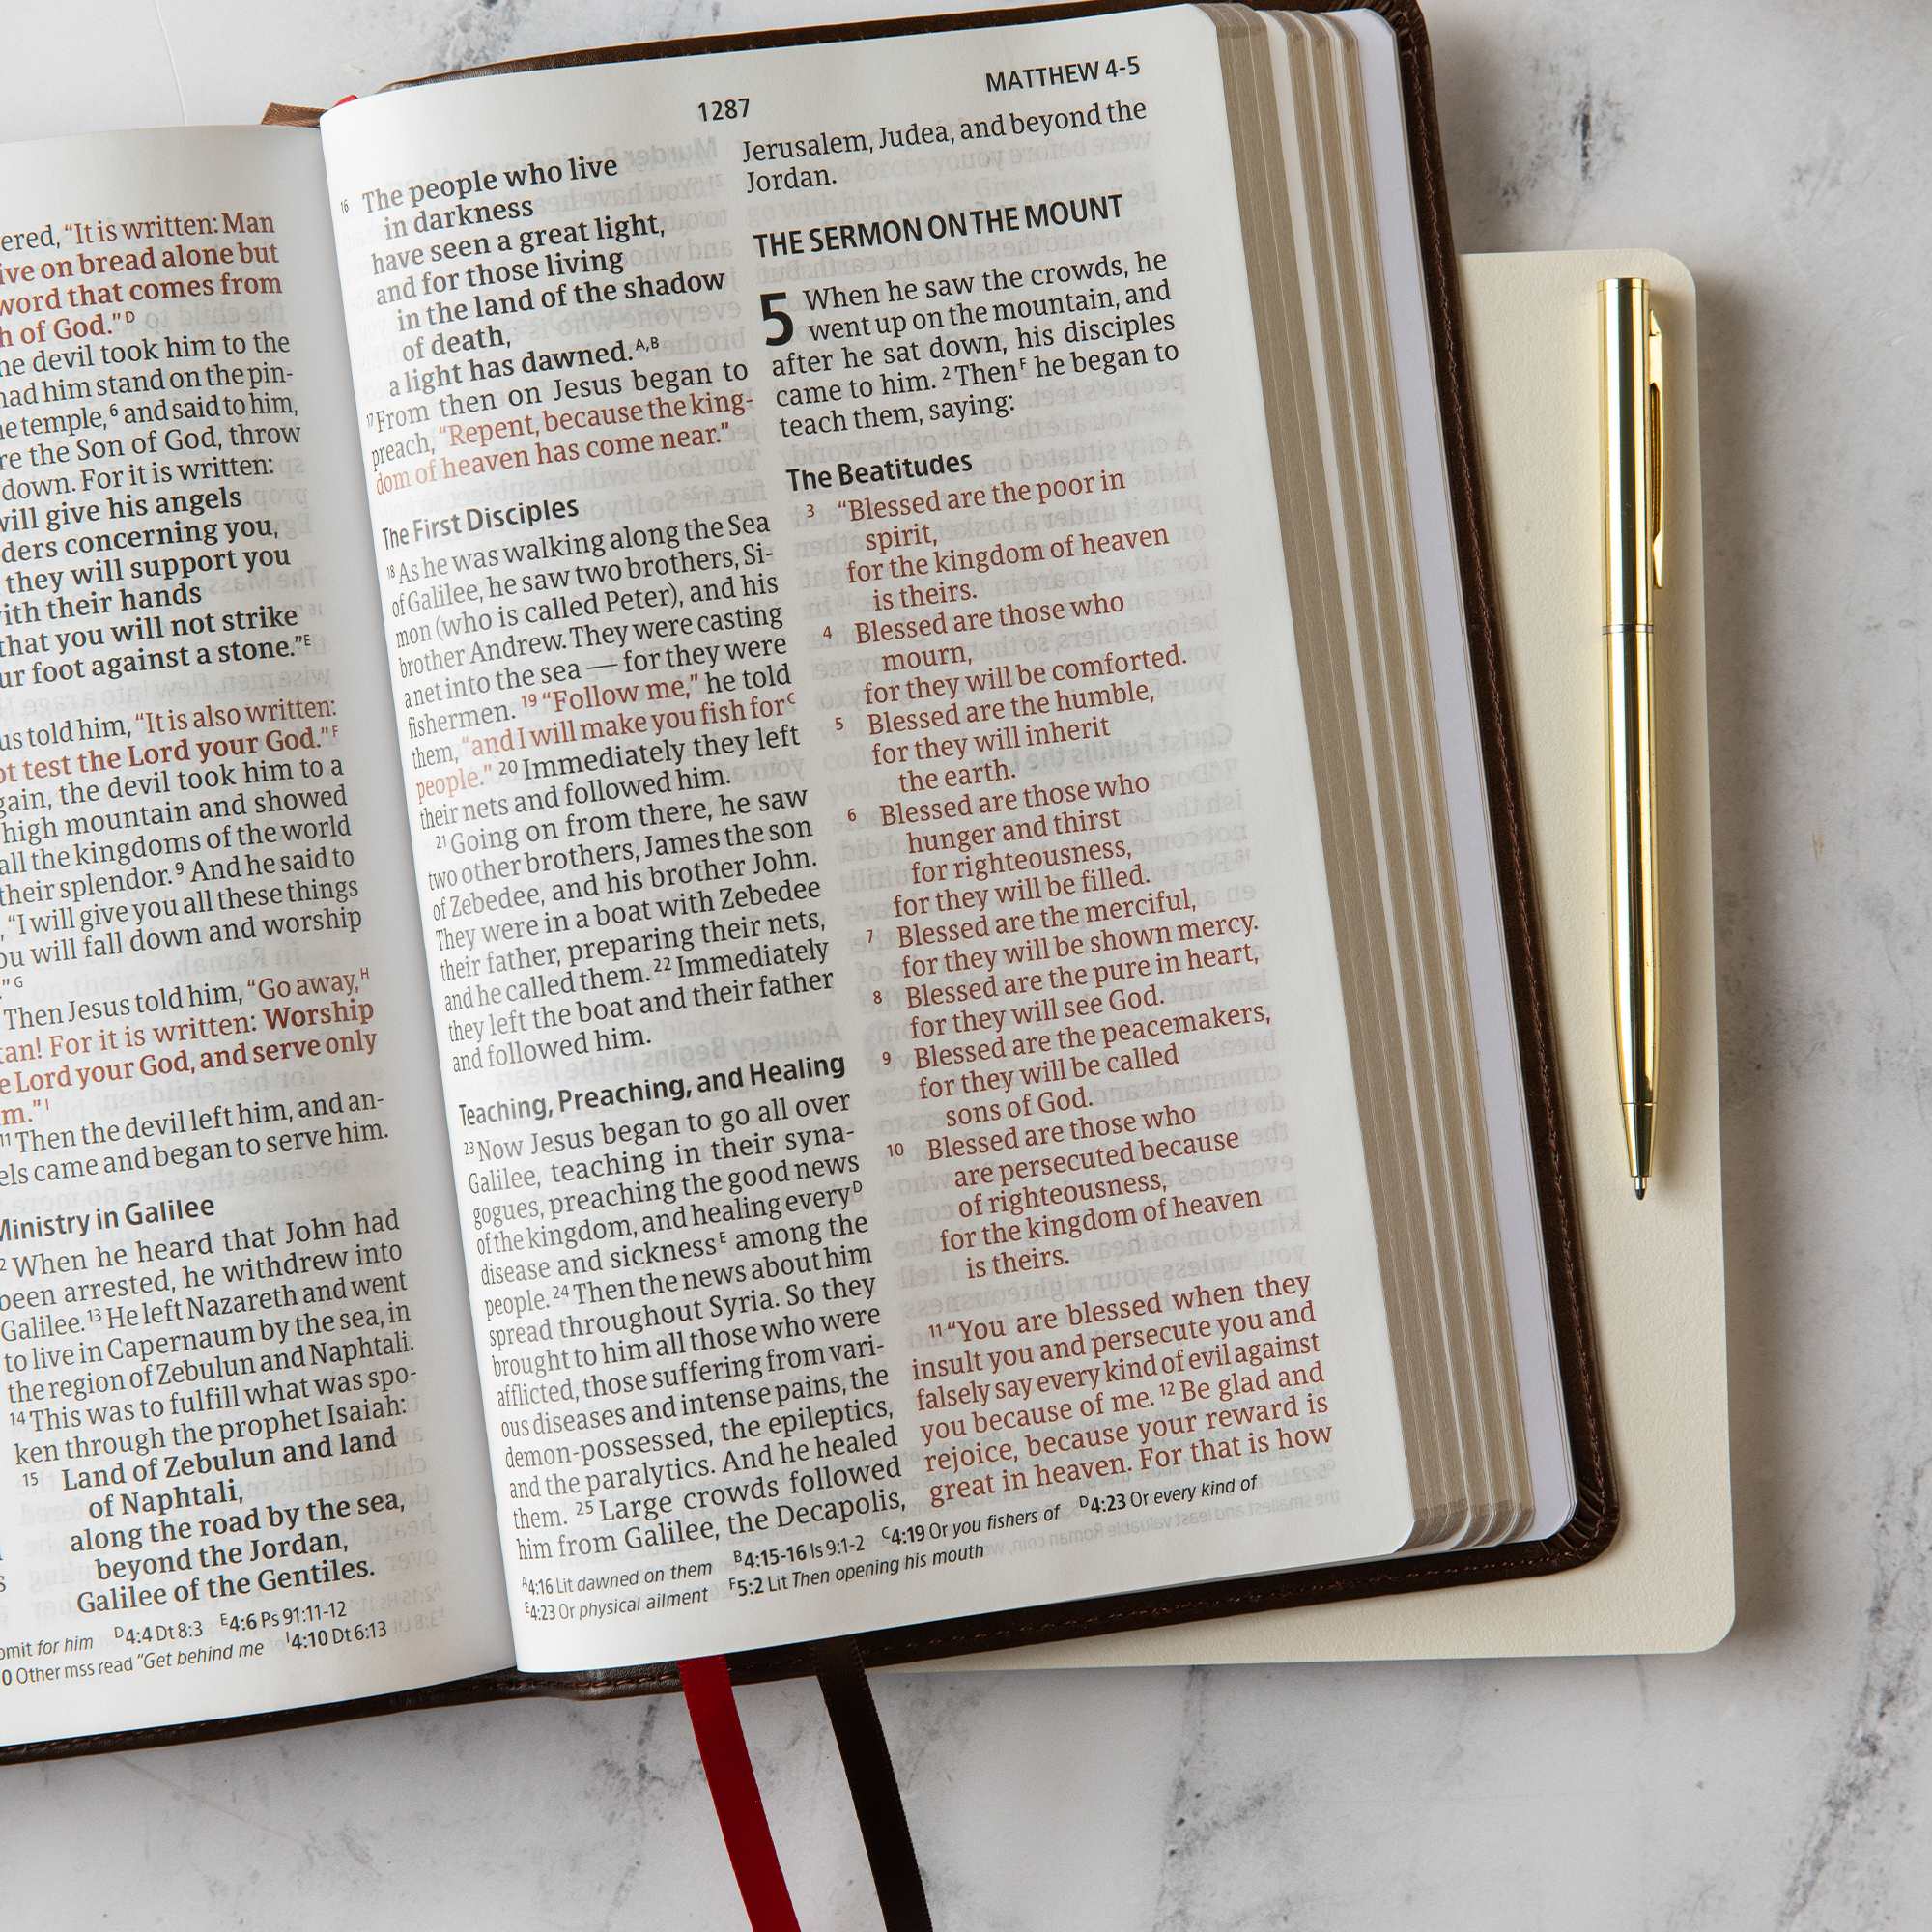 ered, “It is written: Man
ive on bread alone but
word that comes from
h of God.” D
he devil took him to the
had him stand on the pin-
he temple, 6 and said to him,
re the Son of God, throw
down. For it is written:
will give his angels
ders concerning you,
they will support you
with their hands
that you will not strike
ur foot against a stone.” E
us told him, “It is also written:
ot test the Lord your God.” F
gain, the devil took him to a
high mountain and showed
all the kingdoms of the world
their splendor. 9 And he said to
, “I will give you all these things
ou will fall down and worship
.” G
Then Jesus told him, “Go away, H
tan! For it is written: Worship
e Lord your God, and serve only
m.” I
11 Then the devil left him, and an-
els came and began to serve him.
Ministry in Galilee
2 When he heard that John had
been arrested, he withdrew into
Galilee. 13 He left Nazareth and went
to live in Capernaum by the sea, in
the region of Zebulun and Naphtali.
14 This was to fulfill what was spo-
ken through the prophet Isaiah:
15 Land of Zebulun and land
of Naphtali,
along the road by the sea,
beyond the Jordan,
Galilee of the Gentiles.
omit for him D4:4 Dt 8:3 E4:6 Ps 91:11-12
0 Other mss read “Get behind me I4:10 Dt 6:13
1287
MATTHEW 4-5
16 The people who live
in darkness
have seen a great light,
and for those living
in the land of the shadow
of death,
a light has dawned. A,B
17 From then on Jesus began to
preach, “Repent, because the king-
dom of heaven has come near.”
The First Disciples
18 As he was walking along the Sea
of Galilee, he saw two brothers, Si-
mon (who is called Peter), and his
brother Andrew. They were casting
a net into the sea — for they were
fishermen. 19 “Follow me,” he told
them, “and I will make you fish for C
people.” 20 Immediately they left
their nets and followed him.
21 Going on from there, he saw
two other brothers, James the son
of Zebedee, and his brother John.
They were in a boat with Zebedee
their father, preparing their nets,
and he called them. 22 Immediately
they left the boat and their father
and followed him.
Teaching, Preaching, and Healing
23 Now Jesus began to go all over
Galilee, teaching in their syna-
gogues, preaching the good news
of the kingdom, and healing every D
disease and sickness E among the
people. 24 Then the news about him
spread throughout Syria. So they
brought to him all those who were
afflicted, those suffering from vari-
ous diseases and intense pains, the
demon-possessed, the epileptics,
and the paralytics. And he healed
them. 25 Large crowds followed
him from Galilee, the Decapolis,
Jerusalem, Judea, and beyond the
Jordan.
THE SERMON ON THE MOUNT
5 When he saw the crowds, he
went up on the mountain, and
after he sat down, his disciples
came to him. 2 Then F he began to
teach them, saying:
The Beatitudes
3 “Blessed are the poor in
spirit,
for the kingdom of heaven
is theirs.
4 Blessed are those who
mourn,
for they will be comforted.
5 Blessed are the humble,
for they will inherit
the earth.
6 Blessed are those who
hunger and thirst
for righteousness,
for they will be filled.
7 Blessed are the merciful,
for they will be shown mercy.
8 Blessed are the pure in heart,
for they will see God.
9 Blessed are the peacemakers,
for they will be called
sons of God.
10 Blessed are those who
are persecuted because
of righteousness,
for the kingdom of heaven
is theirs.
11 “You are blessed when they
insult you and persecute you and
falsely say every kind of evil against
you because of me. 12 Be glad and
rejoice, because your reward is
great in heaven. For that is how
A4:16 Lit dawned on them B4:15-16 Is 9:1-2 C4:19 Or you fishers of D4:23 Or every kind of
E4:23 Or physical ailment F5:2 Lit Then opening his mouth